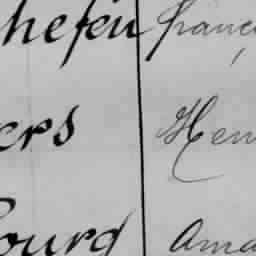 hefeu franç
ers Hen
ourg Ama